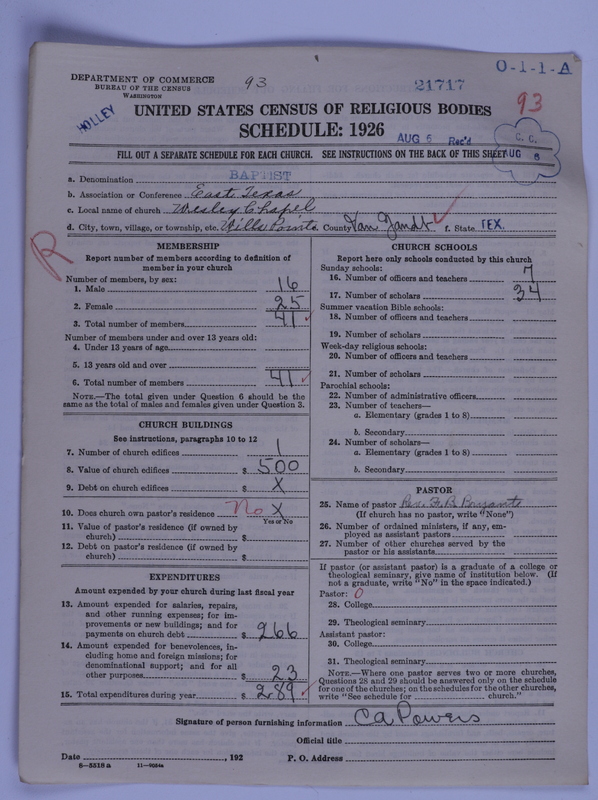 O-1-1-A
DEPARTMENT OF COMMERCE
BUREAU OF THE CENSUS
WASHINGTON
93
21717
93
HOLLEY
UNITED STATES CENSUS OF RELIGIOUS BODIES
SCHEDULE: 1926
AUG 5 Rec'd
C. C.
AUG 6
FILL OUT A SEPARATE SCHEDULE FOR EACH CHURCH. SEE INSTRUCTIONS ON THE BACK OF THIS SHEET
a. Denomination BAPTIST
b. Association or Conference East Texas
c. Local name of church Wesley Chapel
d. City, town, village, or township, etc. Wills Point County Van Zandt f. State TEX.
R
MEMBERSHIP
Report number of members according to definition of
member in your church
Number of members, by sex:
1. Male 16
2. Female 25
3. Total number of members 41
Number of members under and over 13 years old:
4. Under 13 years of age
5. 13 years old and over
6. Total number of members 41
NOTE.—The total given under Question 6 should be the
same as the total of males and females given under Question 3.
CHURCH BUILDINGS
See instructions, paragraphs 10 to 12
7. Number of church edifices 1
8. Value of church edifices $ 500
9. Debt on church edifices $ X
10. Does church own pastor's residence No X
Yes or No
11. Value of pastor's residence (if owned by
church) $
12. Debt on pastor's residence (if owned by
church) $
EXPENDITURES
Amount expended by your church during last fiscal year
13. Amount expended for salaries, repairs,
and other running expenses; for im-
provements or new buildings; and for
payments on church debt $ 266
14. Amount expended for benevolences, in-
cluding home and foreign missions; for
denominational support; and for all
other purposes $ 23
15. Total expenditures during year $ 289
CHURCH SCHOOLS
Report here only schools conducted by this church
Sunday schools:
16. Number of officers and teachers 7
17. Number of scholars 34
Summer vacation Bible schools:
18. Number of officers and teachers
19. Number of scholars
Week-day religious schools:
20. Number of officers and teachers
21. Number of scholars
Parochial schools:
22. Number of administrative officers
23. Number of teachers—
a. Elementary (grades 1 to 8)
b. Secondary
24. Number of scholars—
a. Elementary (grades 1 to 8)
b. Secondary
PASTOR
25. Name of pastor Rev. F. B. Bryant
(If church has no pastor, write "None")
26. Number of ordained ministers, if any, em-
ployed as assistant pastors
27. Number of other churches served by the
pastor or his assistants
If pastor (or assistant pastor) is a graduate of a college or
theological seminary, give name of institution below. (If
not a graduate, write "No" in the space indicated.)
Pastor: 0
28. College
29. Theological seminary
Assistant pastor:
30. College
31. Theological seminary
NOTE.—Where one pastor serves two or more churches,
Questions 28 and 29 should be answered only on the schedule
for one of the churches; on the schedules for the other churches,
write "See schedule for church."
Signature of person furnishing information CA Powers
Official title
Date , 192 P. O. Address
6-5518 a 11-9054a